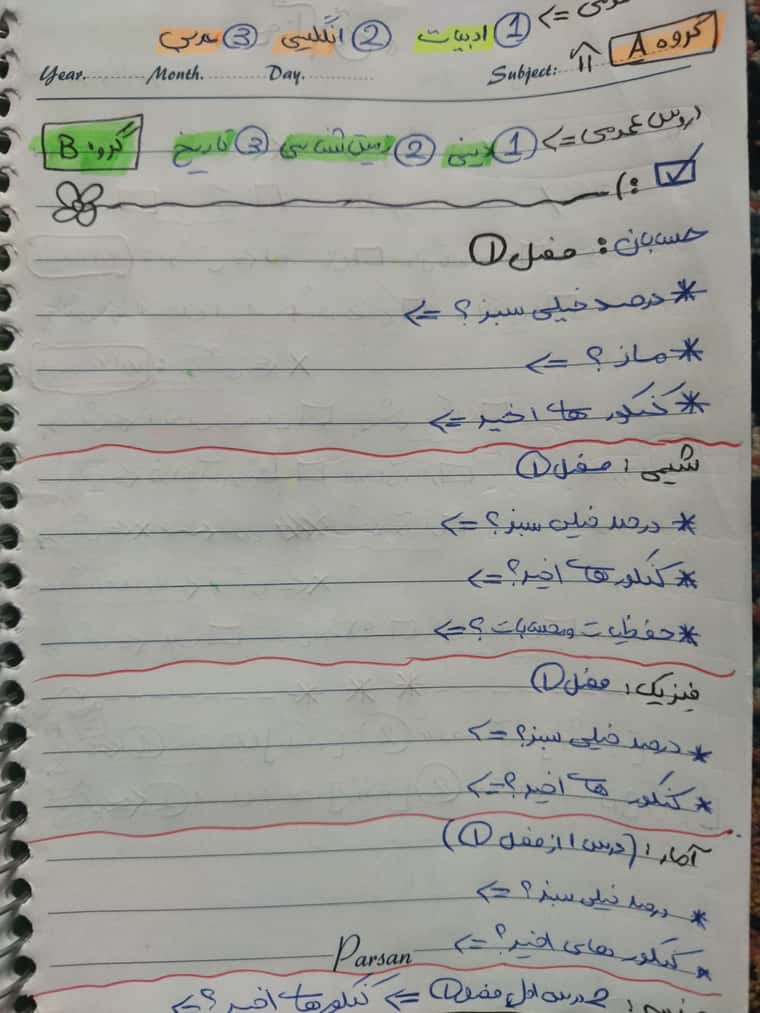 گروه A => ① ادبیات ② انگلیسی ③ عربی
Year. Month. Day. Subject:
دروس عمومی => ① دینی ② زمین شناسی ③ تاریخ گروه B
:)
حسابان: فصل ①
* درصد خیلی سبز؟ =>
* ماز؟ =>
* کنکور ها اخیر =>
شیمی: فصل ①
* درصد خیلی سبز؟ =>
* کنکور ها اخیر؟ =>
* حفظیات و محاسبات؟ =>
فیزیک: فصل ①
* درصد خیلی سبز؟ =>
* کنکور ها اخیر؟ =>
آمار: (درس ۱ از فصل ①)
* درصد خیلی سبز؟ =>
* کنکور های اخیر؟ =>
Parsan
درس اول فصل ① => کنکور ها اخیر؟ =>